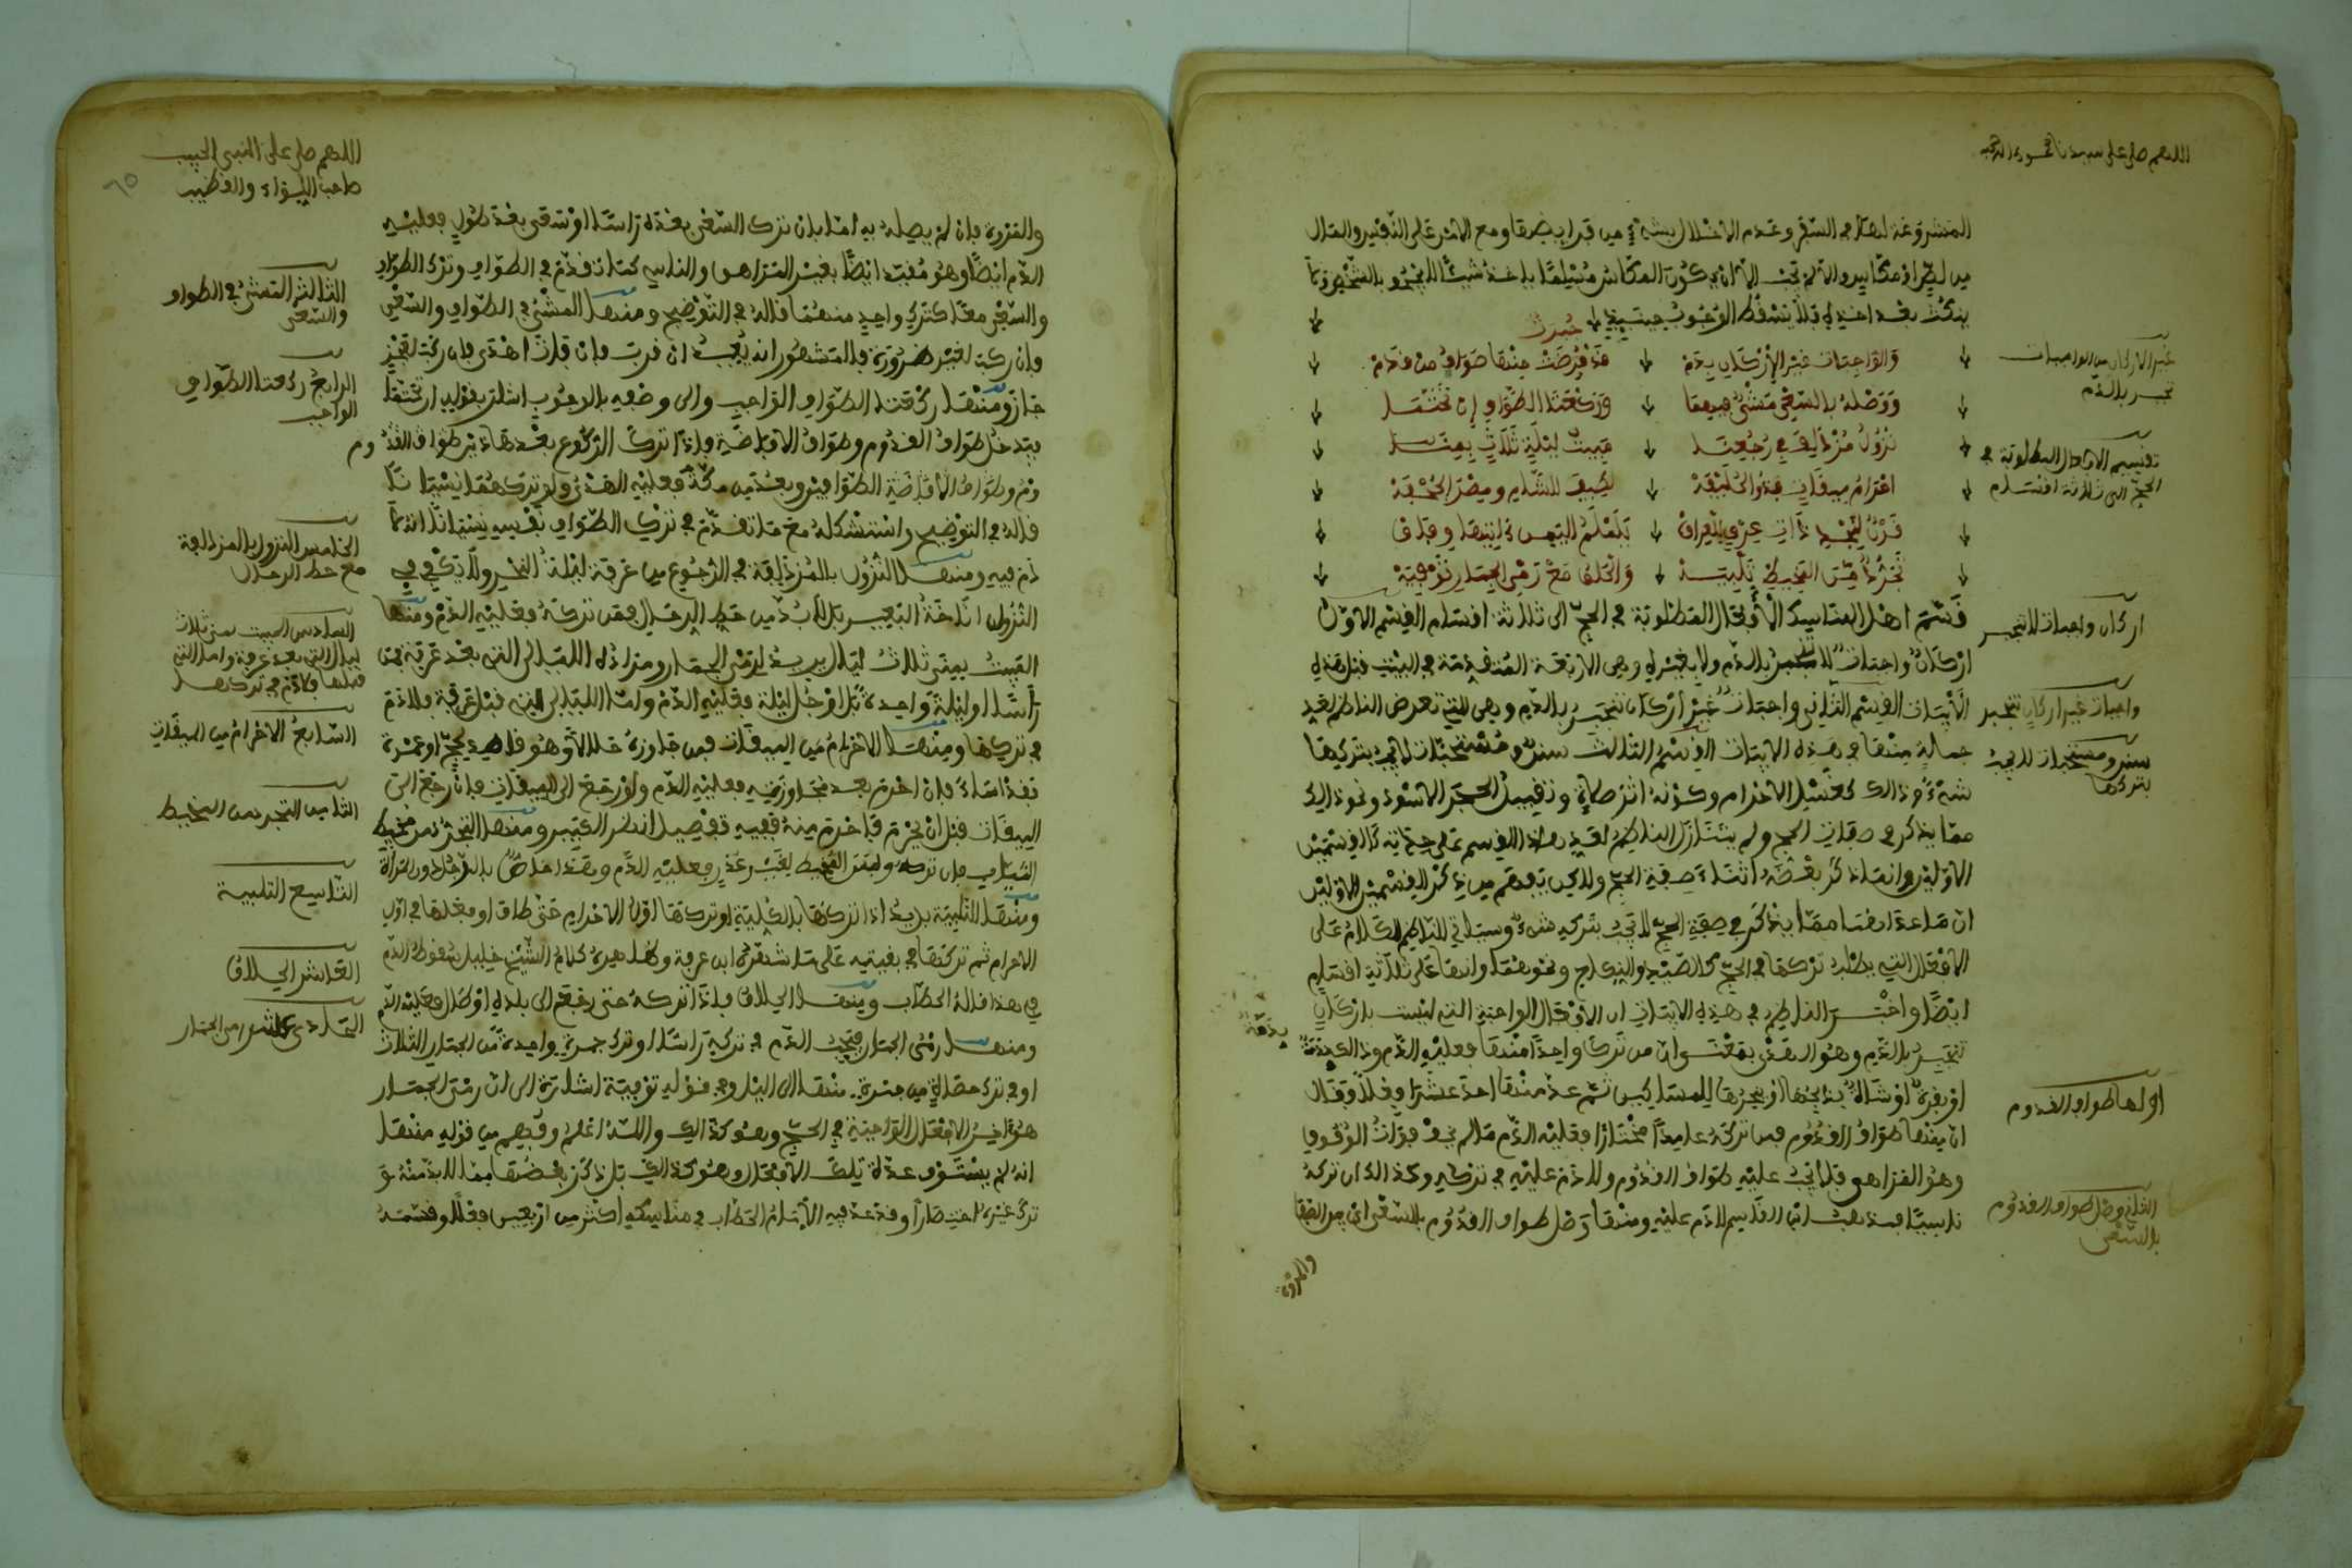 اللهم صل على سيدنا محمد وءاله وصحبه
المشروعة لهما في السفر وعدم الاخلال بشيء من فرايضها ومع الامن على النفس والمال
من لص او مكاس والا لم يجب الا ان يكون المكاس مسلما ياخذ شيئا لا يجحف بالشخص ولا
ينكث بعد اخذه فلا يسقط الوجوب حينئذ
والواجبات غير الاركان بدم قد جبرت منها طواف من قدم
ووصله بالسعي مشي فيهما وركعتا الطواف ان تحتما
نزول مزدلف في رجوعنا مبيت ليلات ثلاث بمنى
احرام ميقات فذو الحليفة لطيب للشام ومصر الجحفة
قرن لنجد ذات عرق للعراق يلملم اليمن ءاتيها وفاق
تجرد من المخيط تلبية والحلق مع رمي الجمار توفية
قسم اهل المناسك الافعال المطلوبة في الحج الى ثلاثة اقسام القسم الاول
اركان واجبات لا تنجبر بالدم ولا بغيره وهي الاربعة المتقدمة في البيت قبل هذه
الابيات القسم الثاني واجبات غير اركان تنجبر بالدم وهي التي تعرض الناظم لعد
جملة منها في هذه الابيات القسم الثالث سنن ومستحبات لا يجب بتركها
شيء وذالك كغسل الاحرام وكونه اثر صلاة وتقبيل الحجر الاسود ونحو ذالك
مما يذكر في صفات الحج ولم يتنازل الناظم لعد هذا القسم على حدته كالقسمين
الاولين وانما ذكر بعضه اثناء صفة الحج ولاكن يفهم من ذكر القسمين الاولين
ان ما عداهما مما يذكر في صفة الحج لا يجب بتركه شيء وسياتي للناظم الكلام على
الافعال التي يطلب تركها في الحج كالصيد والنكاح ونحوهما وانها على ثلاثة اقسام
ايضا واخبر الناظم في هذه الابيات ان الافعال الواجبة التي ليست باركان
تنجبر بالدم وهو الهدي بمعنى ان من ترك واحدا منها فعليه الدم وذالك بدنة
او بقرة او شاة يذبحها او ينحرها للمساكين ثم عد منها احد عشر فعلا فقال
ان منها طواف القدوم فمن تركه عامدا مختارا فعليه الدم ما لم يخف فوات الوقوف
وهو المراهق فلا يجب عليه طواف القدوم ولا دم عليه في تركه وكذالك ان تركه
ناسيا فمذهب ابن القاسم لا دم عليه ومنها وصل طواف القدوم بالسعي اي بين الصفا
والمروة
غير الاركان من الواجبات
تجبر بالدم
تقسيم الافعال المطلوبة في
الحج الى ثلاثة اقسام
اركان واجبات لا تنجبر
واجبات غير اركان تنجبر
سنن ومستحبات لا يجب
بتركها
اولها طواف القدوم
الثاني وصل طواف القدوم
بالسعي
اللهم صل على النبي الحبيب
صاحب اللواء والقضيب
٦٥
والمروة فان لم يصله به اما بان ترك السعي بعده راسا او سعى بعد طول فعليه
الدم ايضا وهو مقيد ايضا بغير المراهق والناسي كما تقدم في الطواف وترك الطواف
والسعي معا كترك واحد منهما قاله في التوضيح ومنها المشي في الطواف والسعي
فان ركب لغير ضرورة فالمشهور انه يعيد ان قرب وان فات اهدى وان ركب لعجز
جاز ومنها ركعتا الطواف الواجب والى وصفه بالوجوب اشار بقوله ان تحتما
فيدخل طواف القدوم وطواف الافاضة فاذا ترك الركوع بعد هاذين طواف القدوم
وطواف الافاضة الطوافين وبعد من مكة فعليه الهدي ولو تركهما نسيانا
قاله في التوضيح واستشكله مع ما تقدم في ترك الطواف نفسه نسيانا انه لا
دم فيه ومنها النزول بالمزدلفة في الرجوع من عرفة ليلة النحر ولا يكفي في
النزول اناخة البعير بل لا بد من حط الرحال فمن تركه فعليه الدم ومنها
المبيت بمنى ثلاث ليال يريد لرمي الجمار ومراده الليالي التي بعد عرفة فمن
راسا او ليلة واحدة بل او جل ليلة فعليه الدم واما الليالي التي قبل عرفة فلا دم
في تركها ومنها الاحرام من الميقات فمن جاوزه حلالا وهو قاصد لحج او عمرة
فقد اساء فان احرم بعد مجاوزته فعليه الدم ولو رجع الى الميقات فان رجع الى
الميقات قبل ان يحرم فاحرم منه ففيه تفصيل انظر الكبير ومنها التجرد من مخيط
الثياب فان تركه ولبس المخيط لغير عذر فعليه الدم وهذا خاص بالرجل دون المراة
ومنها التلبية يريد اذا تركها بالكلية او تركها اول الاحرام حتى طاف او فعلها في اول
الاحرام ثم تركها في بقيته على ما شهره ابن عرفة وظاهر كلام الشيخ خليل سقوط الدم
في هذا قاله الحطاب ومنها الحلاق فاذا تركه حتى رجع الى بلده او طال فعليه الدم
ومنها رمي الجمار فيجب الدم في تركه راسا او ترك جمرة واحدة من الجمار الثلاث
او في ترك حصاة من جمرة منها الى الليل وفي قوله توفية اشارة الى ان رمي الجمار
هو ءاخر الافعال الواجبة في الحج وهو كذالك والله اعلم وفهم من قوله منها
انه لم يستوف عدة تلك الافعال وهو كذالك بل ذكر بعضها مما لا بد منه و
ترك غيره اختصارا وقد عد فيه الامام الحطاب في مناسكه اكثر من اربعين فعلا وقسمه
الثالث المشي في الطواف
والسعي
الرابع ركعتا الطواف
الواجب
الخامس النزول بالمزدلفة
مع حط الرحال
السادس المبيت بمنى ثلاث
ليال التي بعد عرفة واما التي
قبلها فلا دم في تركها
السابع الاحرام من الميقات
الثامن التجرد من المخيط
التاسع التلبية
العاشر الحلاق
الحادي عشر رمي الجمار